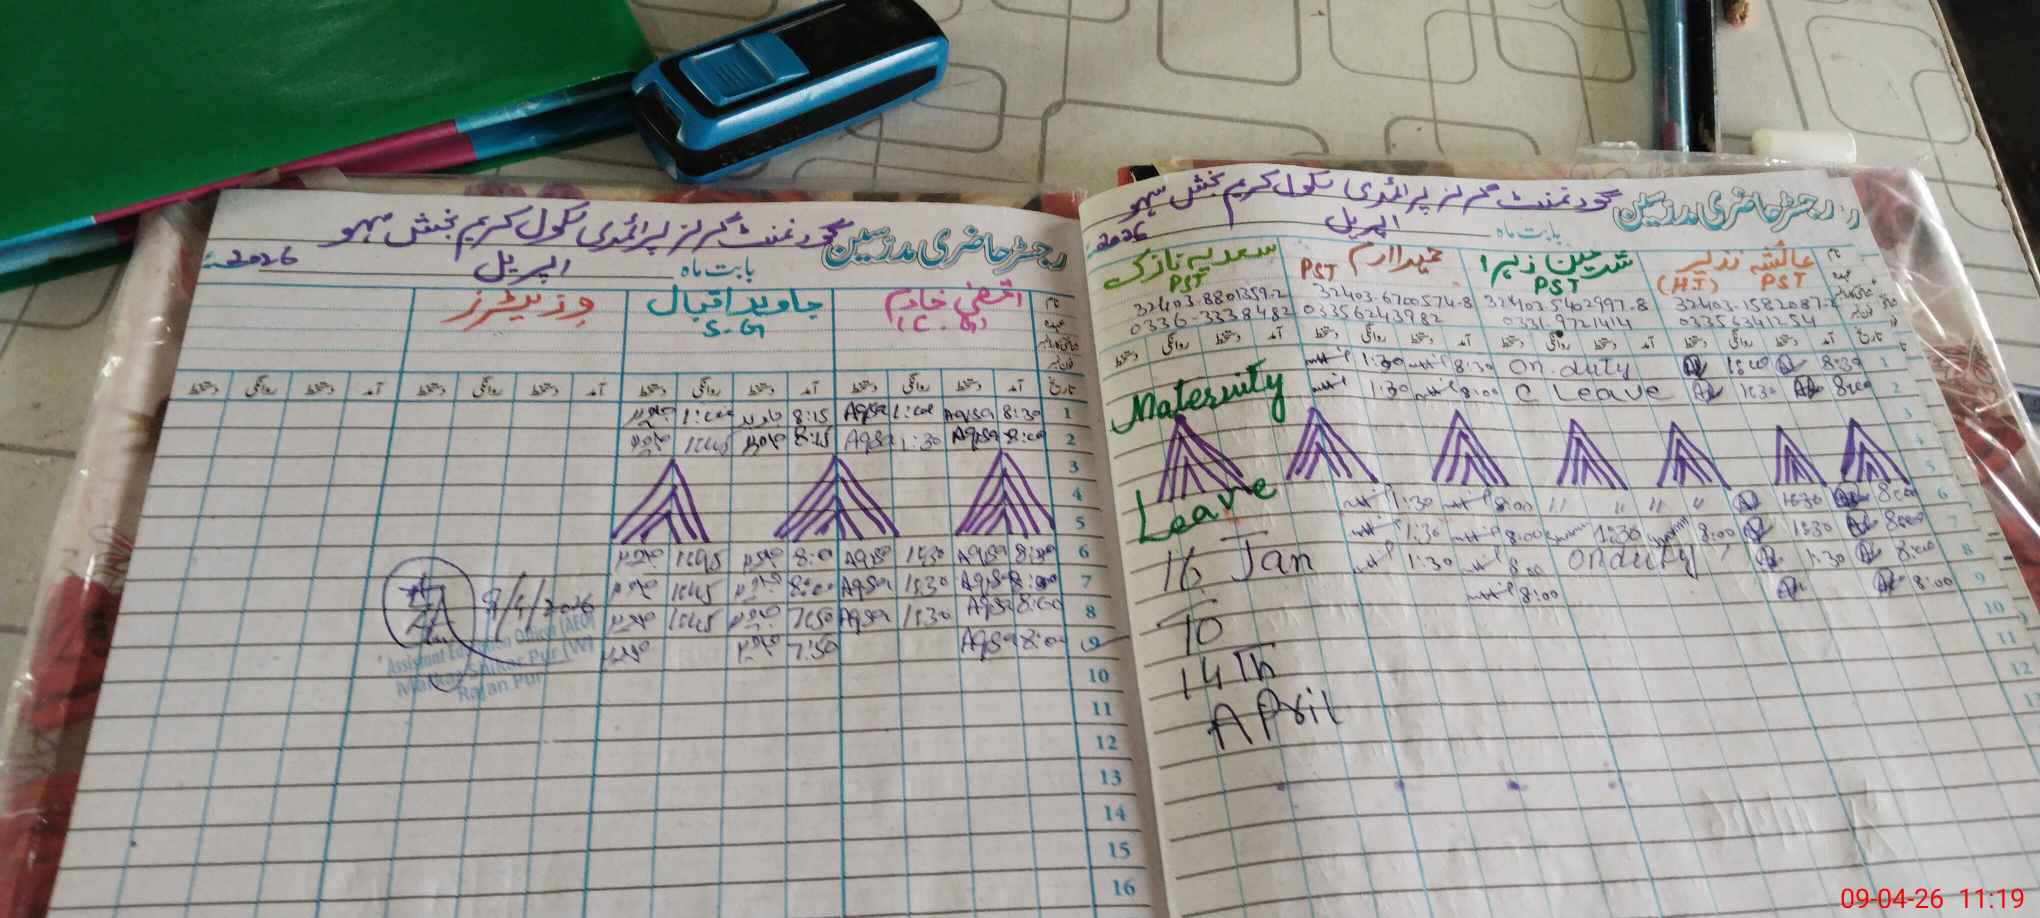 رجسٹر حاضری مدرسین گورنمنٹ گرلز پرائمری سکول کریم بخش سہو
بابت ماہ اپریل 2026
نام عائشہ نذیر شرمین زہرا حمیرا ارم سعدیہ نازک
(H.T) PST PST PST PST
32403-1582087-2 32403-5402997-8 32403-6700574-8 32403-8801359-2
03356341254 0331-9721414 03356243982 0336-3338482
تاریخ آمد دستخط روانگی دستخط آمد دستخط روانگی دستخط آمد دستخط روانگی دستخط آمد دستخط روانگی دستخط
1 8:30 On duty 8:30 1:30
2 8:00 1:30 C Leave 8:00 1:30
Maternity
3
4
5
Leave
6 8:00 1:30 " " " " 8:00 1:30
7 8:00 1:30 8:00 1:30 8:00 1:30
8 8:00 1:30 On duty 8:00 1:30
16 Jan
9 8:00 8:00
10
To
11
12
14 Th
April
رجسٹر حاضری مدرسین گورنمنٹ گرلز پرائمری سکول کریم بخش سہو
بابت ماہ اپریل 2026
نام اقصٰی خادم جاوید اقبال وزیٹرز
S.G
تاریخ آمد دستخط روانگی دستخط آمد دستخط روانگی دستخط آمد دستخط روانگی دستخط آمد دستخط روانگی دستخط
1 8:30 Aqsa Aqsa 8:15 جاوید جاوید
2 8:00 Aqsa 1:30 Aqsa 8:15 جاوید 1:45 جاوید
3
4
5
6 8:00 Aqsa 1:30 Aqsa 8:0 جاوید 1:45 جاوید
7 8:00 Aqsa 1:30 Aqsa 8:00 جاوید 1:45 جاوید
8 8:00 Aqsa 1:30 Aqsa 7:50 جاوید 1:45 جاوید
9 8:00 Aqsa 7:50 جاوید جاوید
9/4/2026
Assistant Education Officer (AEO)
Markaz Shikar Pur (W)
Rajan Pur
10
11
12
13
14
15
16
09-04-26 11:19